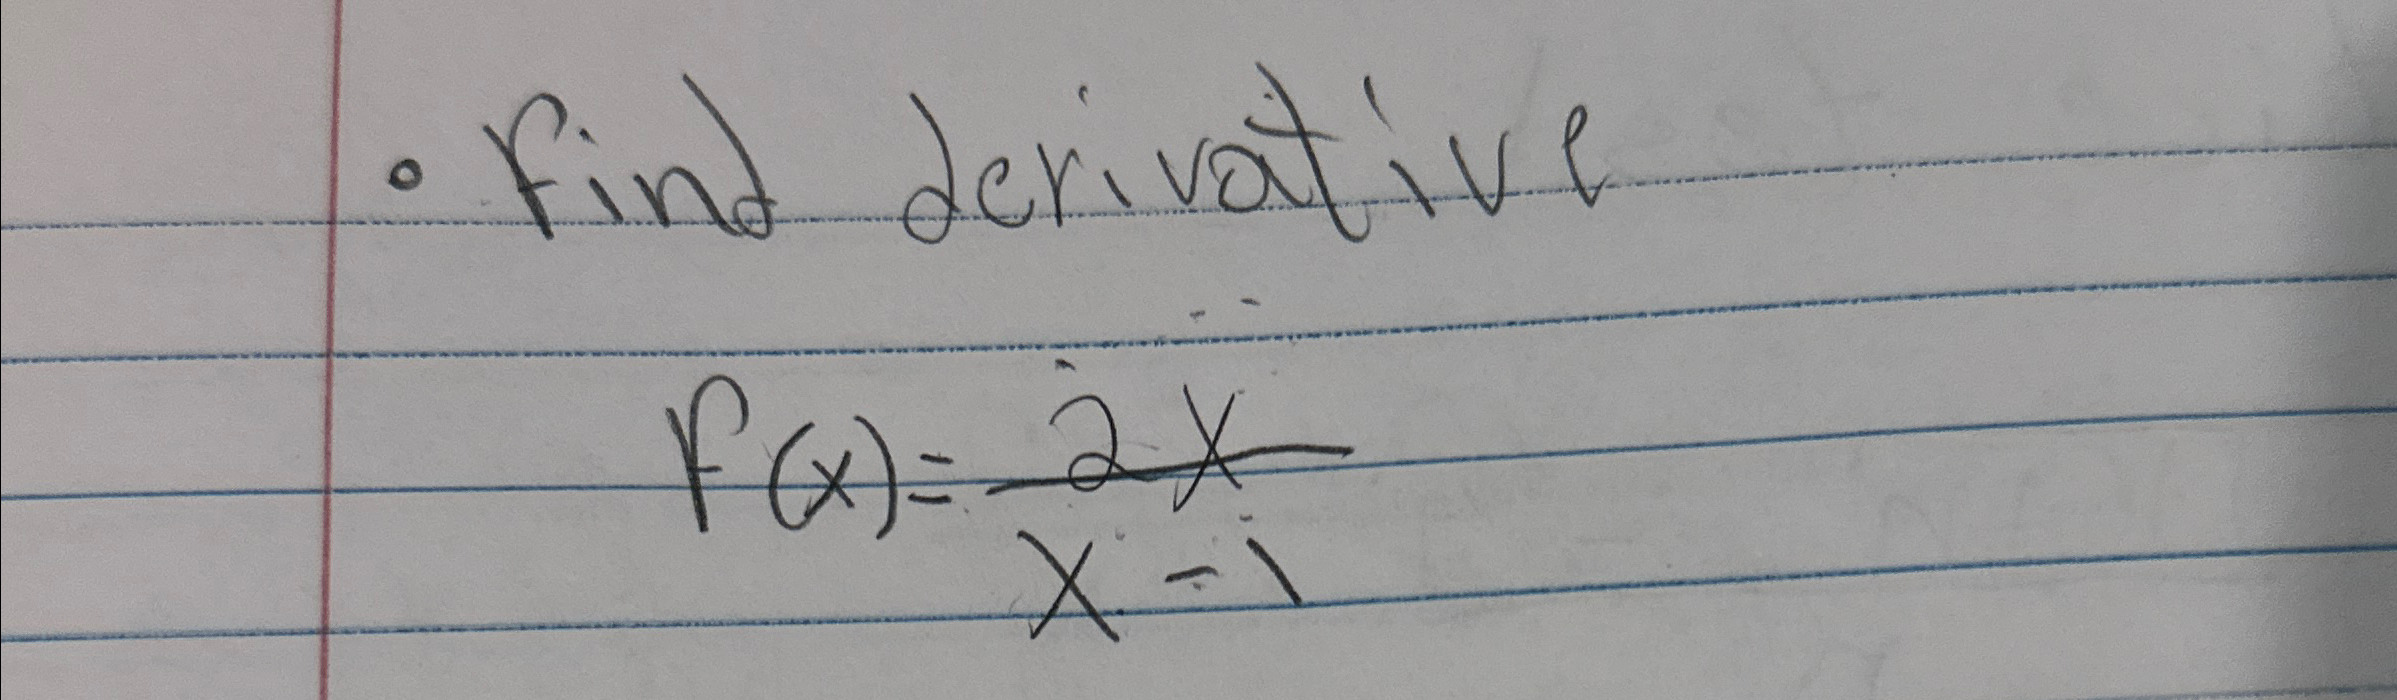 • Find derivative
F(x) = 2x
x - 1